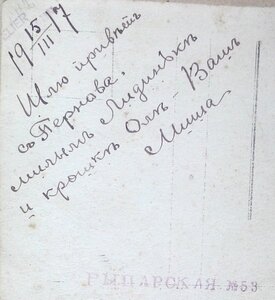 19 15/III 17
Шлю привѣтъ
съ Пернова,
милымъ Лидинькѣ
и крошкѣ Олѣ - Вашъ
Миша
РЫЦАРСКАЯ №53